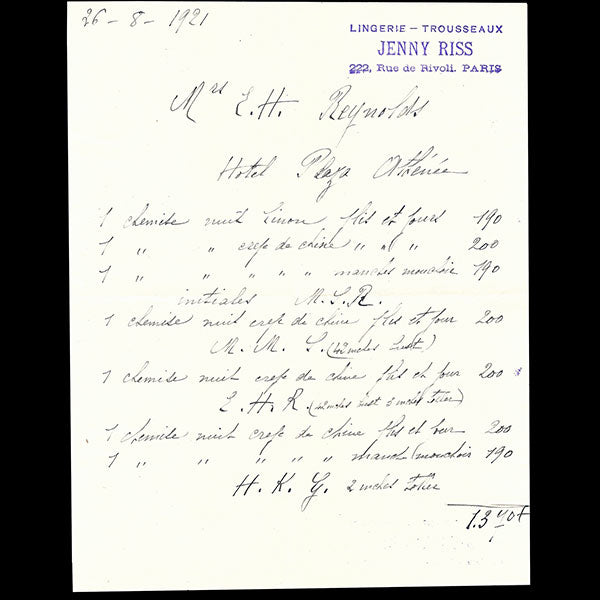 26 - 8 - 1921
LINGERIE – TROUSSEAUX
JENNY RISS
222, Rue de Rivoli. PARIS
Mrs E. H. Reynolds
Hotel Plaza Athénée
1 chemise nuit linon plis et jours 190
1 " " crepe de chine " " " 200
1 " " " " " manches mouchoir 190
initiales M. S. R.
1 chemise nuit crep de chine plis et jour 200
M. M. S. (42 inches bust)
1 chemise nuit crepe de chine plis et jour 200
E. H. R. (42 inches bust inches)
1 chemise nuit crepe de chine plis et jour 200
1 " " " " " manche mouchoir 190
H. K. G. 2 inches
1.370f